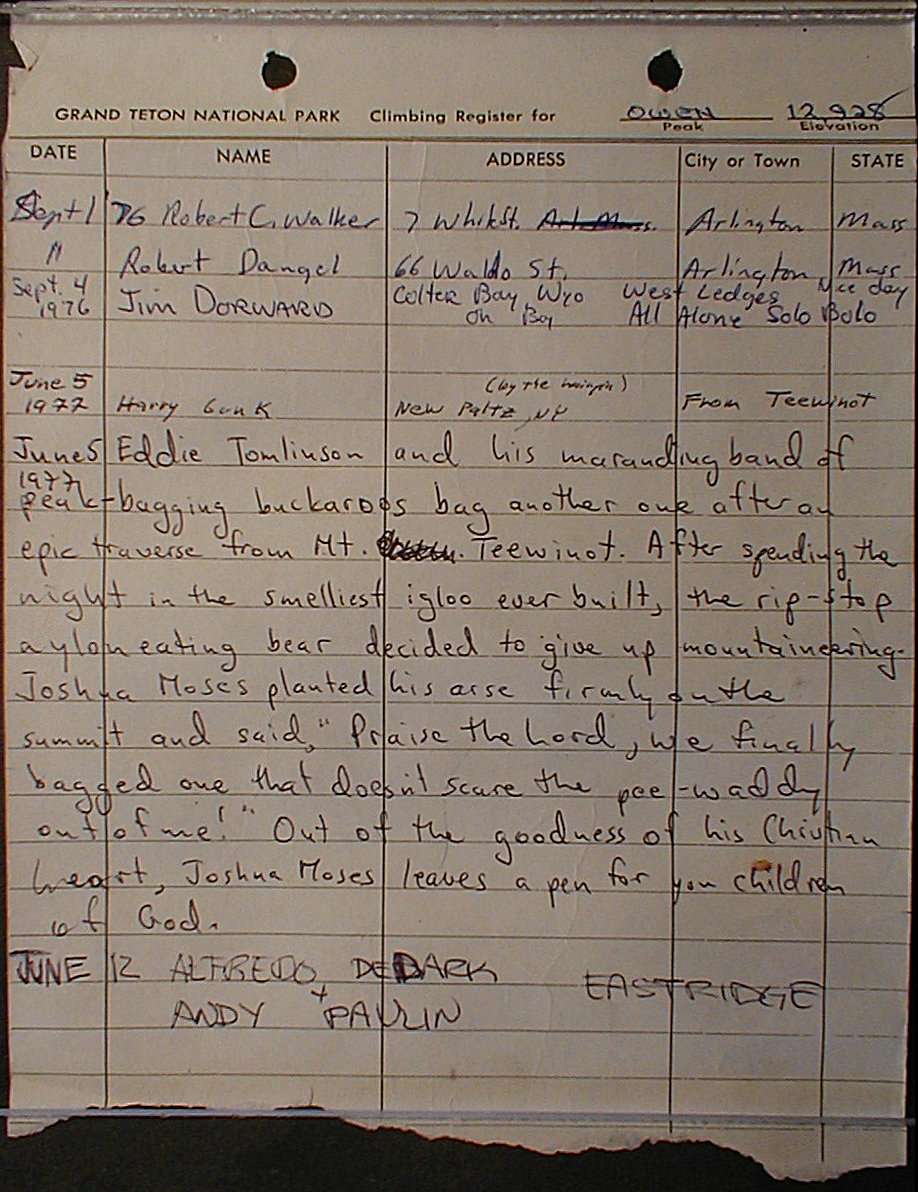 GRAND TETON NATIONAL PARK Climbing Register for OWEN 12,928
Peak Elevation
DATE NAME ADDRESS City or Town STATE
Sept 1 '76 Robert C. Walker 7 St. Arlington Mass
" Robert Dangel 66 Waldo St. Arlington, Mass
Sept. 4 1976 Jim DORWARD Colter Bay, Wyo West Ledges Nice day
oh Boy All Alone Solo Bolo
June 5 (by the )
1977 Harry New Paltz, NY From Teewinot
June 5 Eddie Tomlinson and his marauding band of
1977
peak-bagging buckaroos bag another one after an
epic traverse from Mt. Teewinot. After spending the
night in the smelliest igloo ever built, the rip-stop
nylon eating bear decided to give up mountaineering.
Joshua Moses planted his arse firmly on the
summit and said, "Praise the Lord, we finally
bagged one that doesn't scare the pee-waddy
out of me!" Out of the goodness of his Christian
heart, Joshua Moses leaves a pen for you children
of God.
JUNE 12 ALFREDO DEDARK
+ EASTRIDGE
ANDY PAULIN